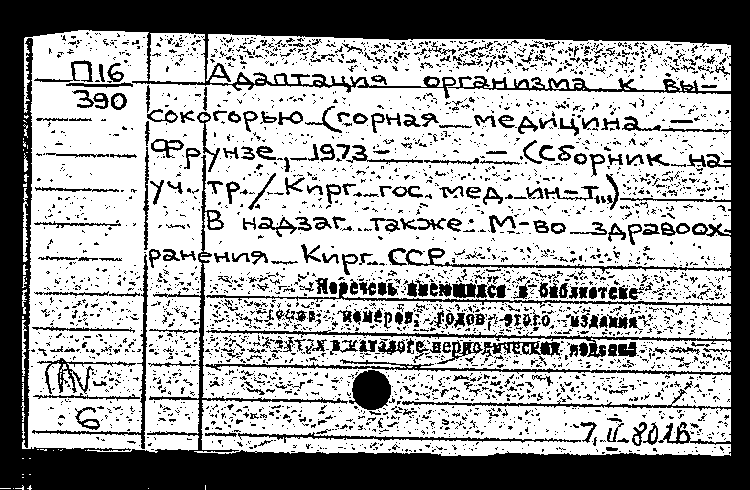 П16
390
Адаптация организма к вы-
сокогорью (горная медицина. —
Фрунзе, 1973- . — (Сборник на-
уч. тр. / Кирг. гос. мед. ин-т)
В надзаг. также: М-во здравоох-
ранения Кирг. ССР.
Перечень имеющихся в библиотеке
томов, номеров, годов этого издания
в каталоге периодических изданий
6
7.II.80